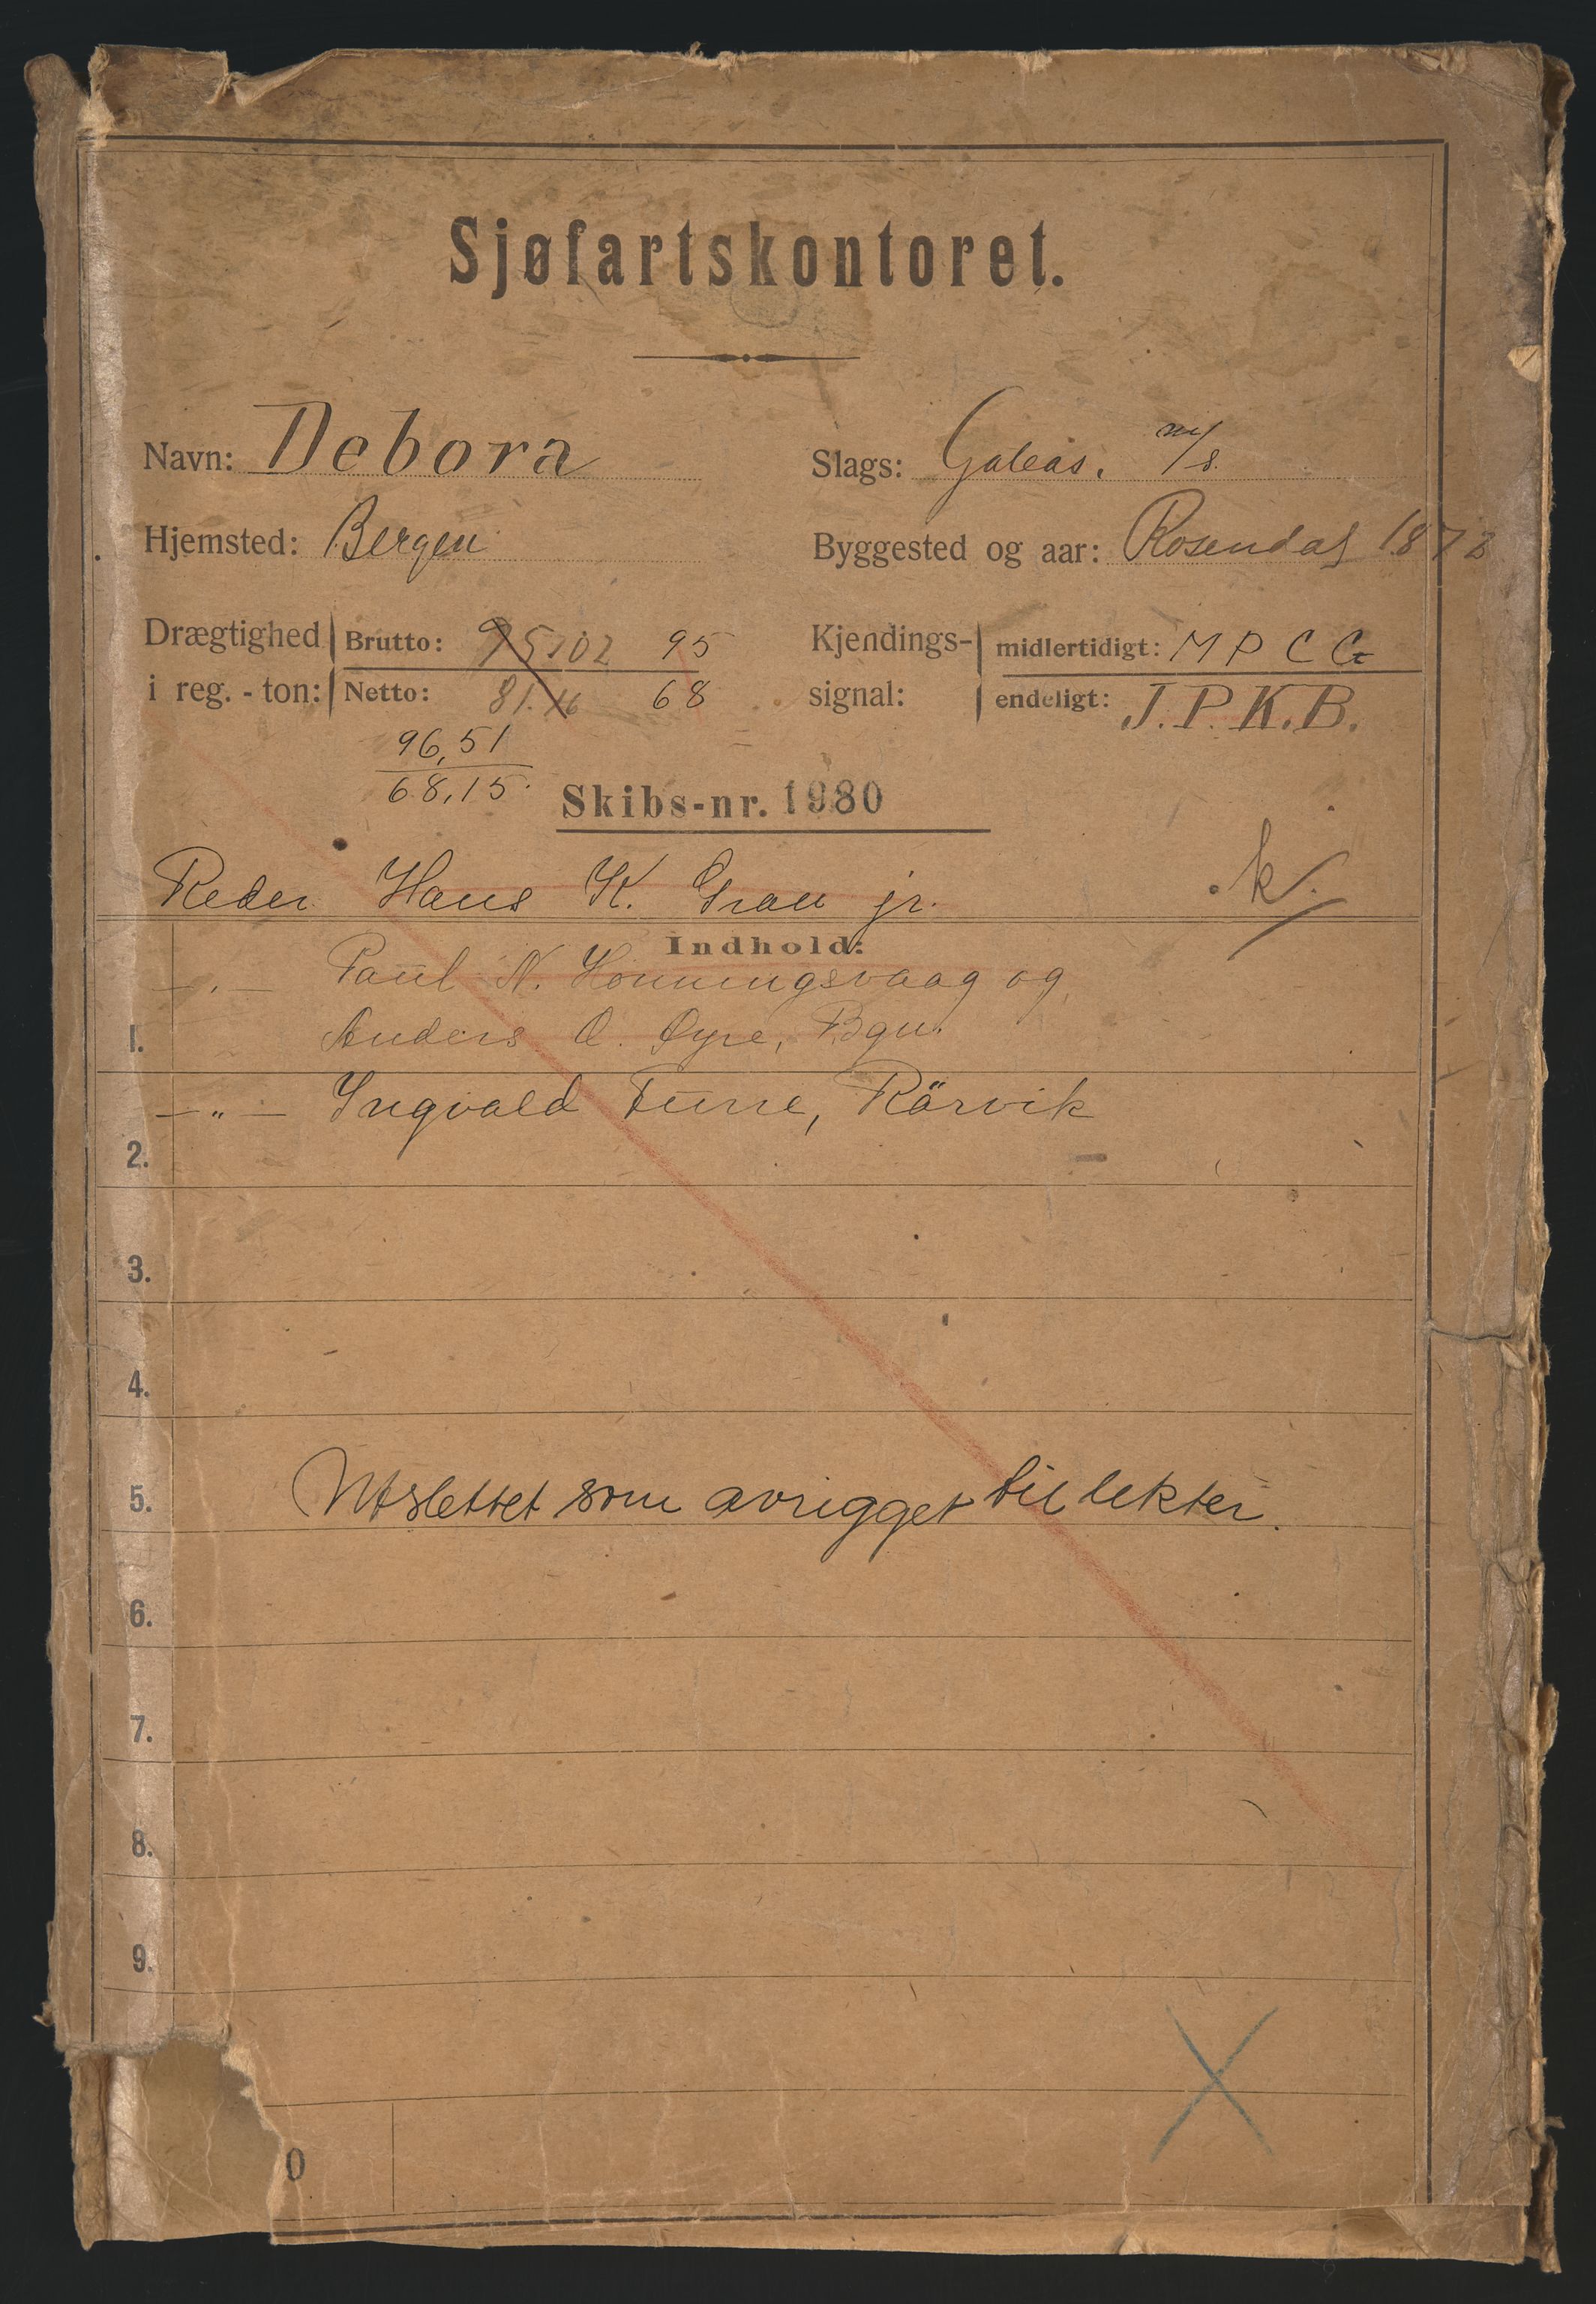 Sjøfartskontoret.
Navn: Debora
Slags: Galeas. m/s.
Hjemsted: Bergen
Byggested og aar: Rosendal 1872
Drægtighed i reg.-ton:
Brutto: 95,02 95
Netto: 81.16 68
96,51
68,15
Kjendings-signal:
midlertidigt: M P C G
endeligt: J.P.K.B.
Skibs-nr. 1980
Reder Hans K. Gran jr.
k
Indhold:
—„— Paul N. Honningsvaag og
1. Anders O. Øyre, Bgn.
—„— Ingvald Furre, Rörvik
2.
3.
4.
5. Utslettet som avrigget til lekter.
6.
7.
8.
9.
0